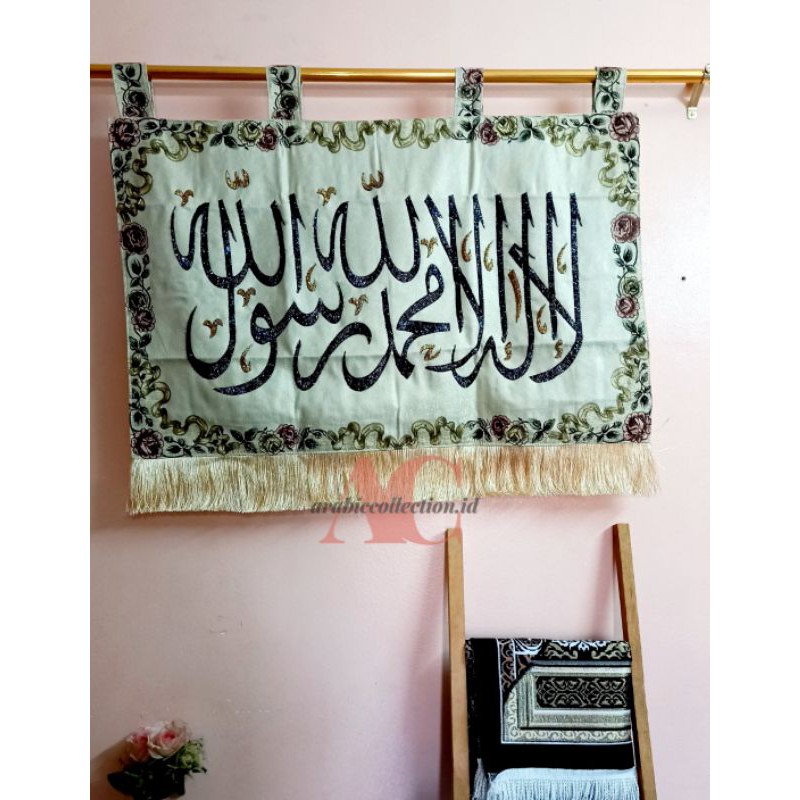 لا إله إلا الله محمد رسول الله
AC
arabiccollection.id